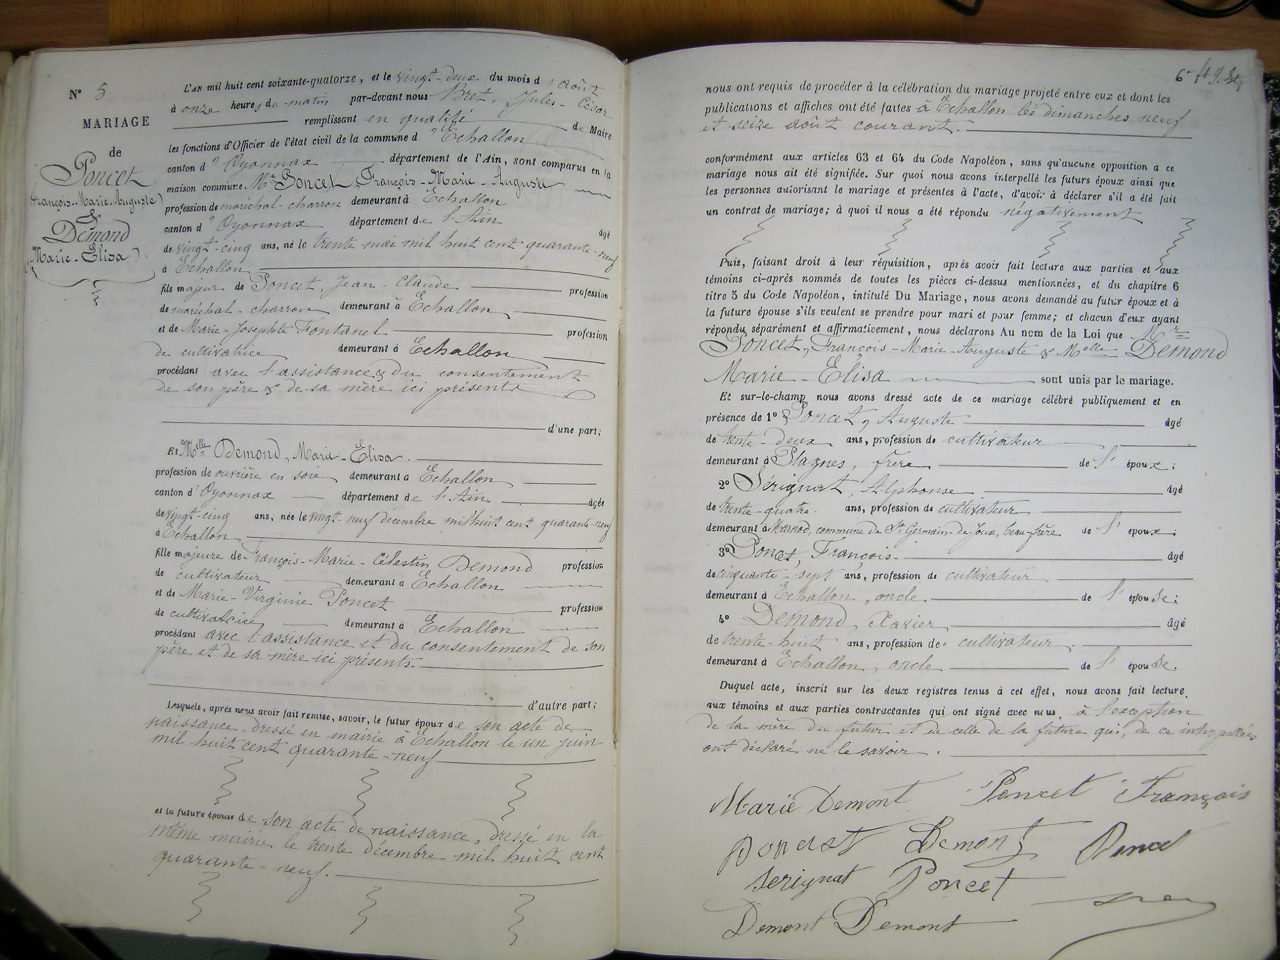 N° 5
MARIAGE
de
Poncet
François-Marie-Auguste
&
Demond
Marie-Elisa
L'an mil huit cent soixante-quatorze, et le vingt-deux du mois d'août
à onze heures du matin par-devant nous Bret, Jules-César
remplissant en qualité de Maire
les fonctions d'Officier de l'état civil de la commune d'Echallon
canton d'Oyonnax département de l'Ain, sont comparus en la
maison commune Mr Poncet, François-Marie-Auguste
profession de maréchal-charron demeurant à Echallon
canton d'Oyonnax département de l'Ain âgé
de vingt-cinq ans, né le trente mai mil huit cent quarante-neuf
à Echallon
fils majeur de Poncet, Jean-Claude profession
de maréchal-charron demeurant à Echallon
et de Marie-Josephte Fontanel profession
de cultivatrice demeurant à Echallon
procédant avec l'assistance & du consentement
de son père & de sa mère ici présents
d'une part;
Et Melle Demond, Marie-Elisa.
profession de ouvrière en soie demeurant à Echallon
canton d'Oyonnax département de l'Ain âgée
de vingt-cinq ans, née le vingt-neuf décembre mil huit cent quarante-neuf
à Echallon
fille majeure de François-Marie-Célestin Demond profession
de cultivateur demeurant à Echallon
et de Marie-Virginie Poncet profession
de cultivatrice demeurant à Echallon
procédant avec l'assistance et du consentement de son
père et de sa mère ici présents.
d'autre part;
Lesquels, après nous avoir fait remise, savoir, le futur époux de son acte de
naissance, dressé en mairie à Echallon le un juin
mil huit cent quarante-neuf
et la future épouse de son acte de naissance, dressé en la
même mairie le trente décembre mil huit cent
quarante-neuf.
6e
nous ont requis de procéder à la célébration du mariage projeté entre eux et dont les
publications et affiches ont été faites à Echallon les dimanches neuf
et seize août courant.
conformément aux articles 63 et 64 du Code Napoléon, sans qu'aucune opposition a ce
mariage nous ait été signifiée. Sur quoi nous avons interpellé les futurs époux ainsi que
les personnes autorisant le mariage et présentes à l'acte, d'avoir à déclarer s'il a été fait
un contrat de mariage; à quoi il nous a été répondu négativement
Puis, faisant droit à leur réquisition, après avoir fait lecture aux parties et aux
témoins ci-après nommés de toutes les pièces ci-dessus mentionnées, et du chapitre 6
titre 5 du Code Napoléon, intitulé Du Mariage, nous avons demandé au futur époux et à
la future épouse s'ils veulent se prendre pour mari et pour femme; et chacun d'eux ayant
répondu séparément et affirmativement, nous déclarons Au nom de la Loi que Mr
Poncet, François-Marie-Auguste & Melle Demond
Marie-Elisa sont unis par le mariage.
Et sur-le-champ nous avons dressé acte de ce mariage célébré publiquement et en
présence de 1° Poncet, Auguste âgé
de trente-deux ans, profession de cultivateur
demeurant à Plagnes, frère de l'époux;
2° Sérignat, Alphonse âgé
de trente-quatre ans, profession de cultivateur
demeurant à Marnod, commune de St Germain-de-Joux, beau-frère de l'époux.
3° Poncet, François âgé
de cinquante-sept ans, profession de cultivateur
demeurant à Echallon, oncle. de l'épouse;
4° Demond, Xavier âgé
de trente-huit ans, profession de cultivateur.
demeurant à Echallon, oncle de l'épouse.
Duquel acte, inscrit sur les deux registres tenus à cet effet, nous avons fait lecture
aux témoins et aux parties contractantes qui ont signé avec nous, à l'exception
de la mère du futur et de celle de la future qui, de ce interpellées
ont déclaré ne le savoir.
Marie Demont Poncet François
Poncet Demont Poncet
Serignat Poncet
Demont Demont